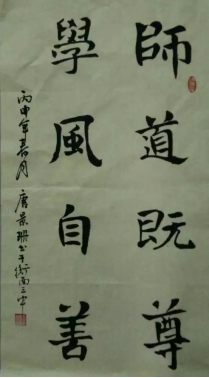 師道既尊
學風自善
丙申年春月唐景珊書于衡南三中